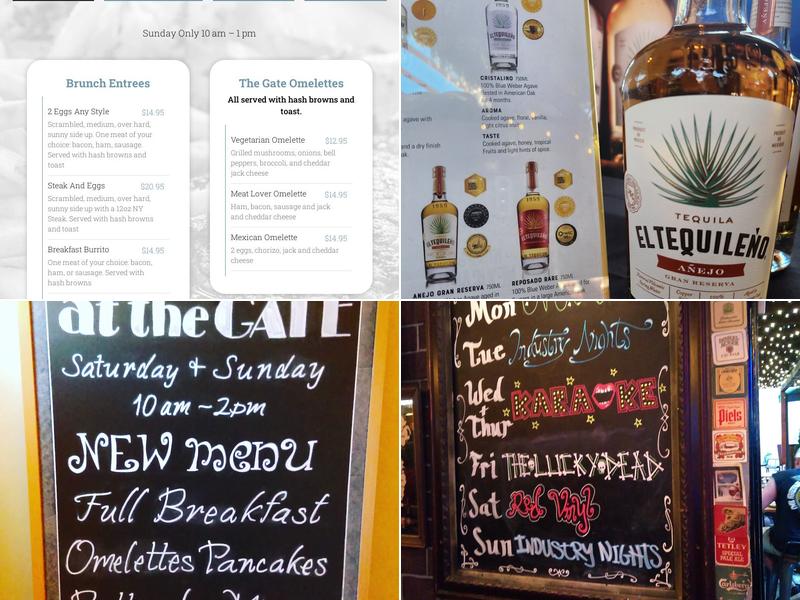 Sunday Only 10 am – 1 pm
Brunch Entrees
2 Eggs Any Style $14.95
Scrambled, medium, over hard,
sunny side up. One meat of your
choice: bacon, ham, sausage.
Served with hash browns and
toast
Steak And Eggs $20.95
Scrambled, medium, over hard,
sunny side up with a 12oz NY
Steak. Served with hash browns
and toast
Breakfast Burrito $14.95
One meat of your choice: bacon,
ham, or sausage. Served with
hash browns
The Gate Omelettes
All served with hash browns and
toast.
Vegetarian Omelette $12.95
Grilled mushrooms, onions, bell
peppers, broccoli, and cheddar
jack cheese
Meat Lover Omelette $14.95
Ham, bacon, sausage and jack
and cheddar cheese
Mexican Omelette $14.95
2 eggs, chorizo, jack and cheddar
cheese
CRISTALINO 750ML
100% Blue Weber Agave
Rested in American Oak
for 4 months.
AROMA
Cooked agave, floral, vanilla,
light citrus
TASTE
Cooked agave, honey, tropical
Fruits and light hints of spice.
agave with
and a dry finish
1959
1959
AÑEJO GRAN RESERVA 750ML
REPOSADO RARE 750ML
100% Blue Weber
in a large American
TEQUILA
EL TEQUILEÑO
AÑEJO
GRAN RESERVA
at the GATE
Saturday + Sunday
10 am - 2pm
NEW menu
Full Breakfast
Omelettes Pancakes
Mon
Tue Industry Nights
Wed + Thur KARAOKE
Fri THE LUCKY DEAD
Sat Red Vinyl
Sun INDUSTRY NIGHTS
Piels
TETLEY
SPECIAL
PALE ALE
Carlsberg